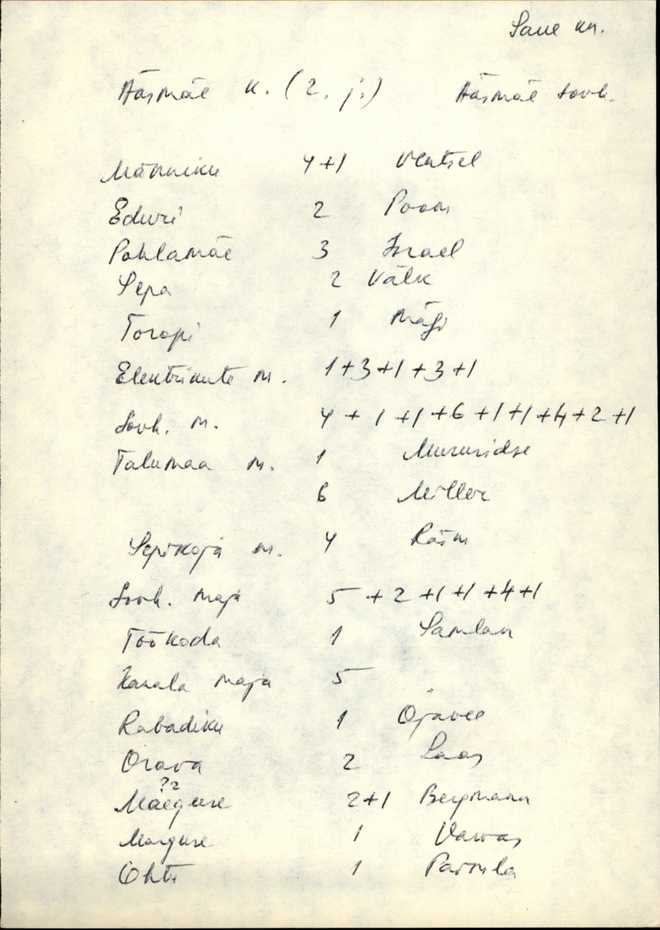 Saue kn.
Ääsmäe k. (2. j.) Ääsmäe sovh.
Männiku 4+1 Ventsel
Eduri 2 Poom
Pohlamäe 3 Israel
Sepa 2 Välk
Toropi 1 Mägi
Elektrikute m. 1+3+1+3+1
Sovh. m. 4+1+1+6+1+1+4+2+1
Talumaa m. 1
6 Miller
Sepikoja m. 4 Rääm
Sovh. maja 5+2+1+1+4+1
Töökoda 1 Samlan
Kanala maja 5
Rabadiku 1 Ojavee
Orava 2 Saar
??
Mäeguse 2+1 Bergmann
Marguse 1
Ohti 1 Parmila